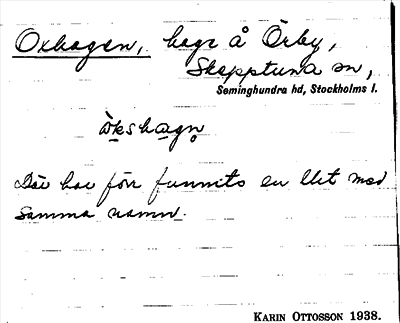 Oxhagen, hage å Örby,
Skepptuna sn,
Seminghundra hd, Stockholms l.
ò̱ksha̱gn̥
Där har förr funnits en lht med
samma namn.
KARIN OTTOSSON 1938.